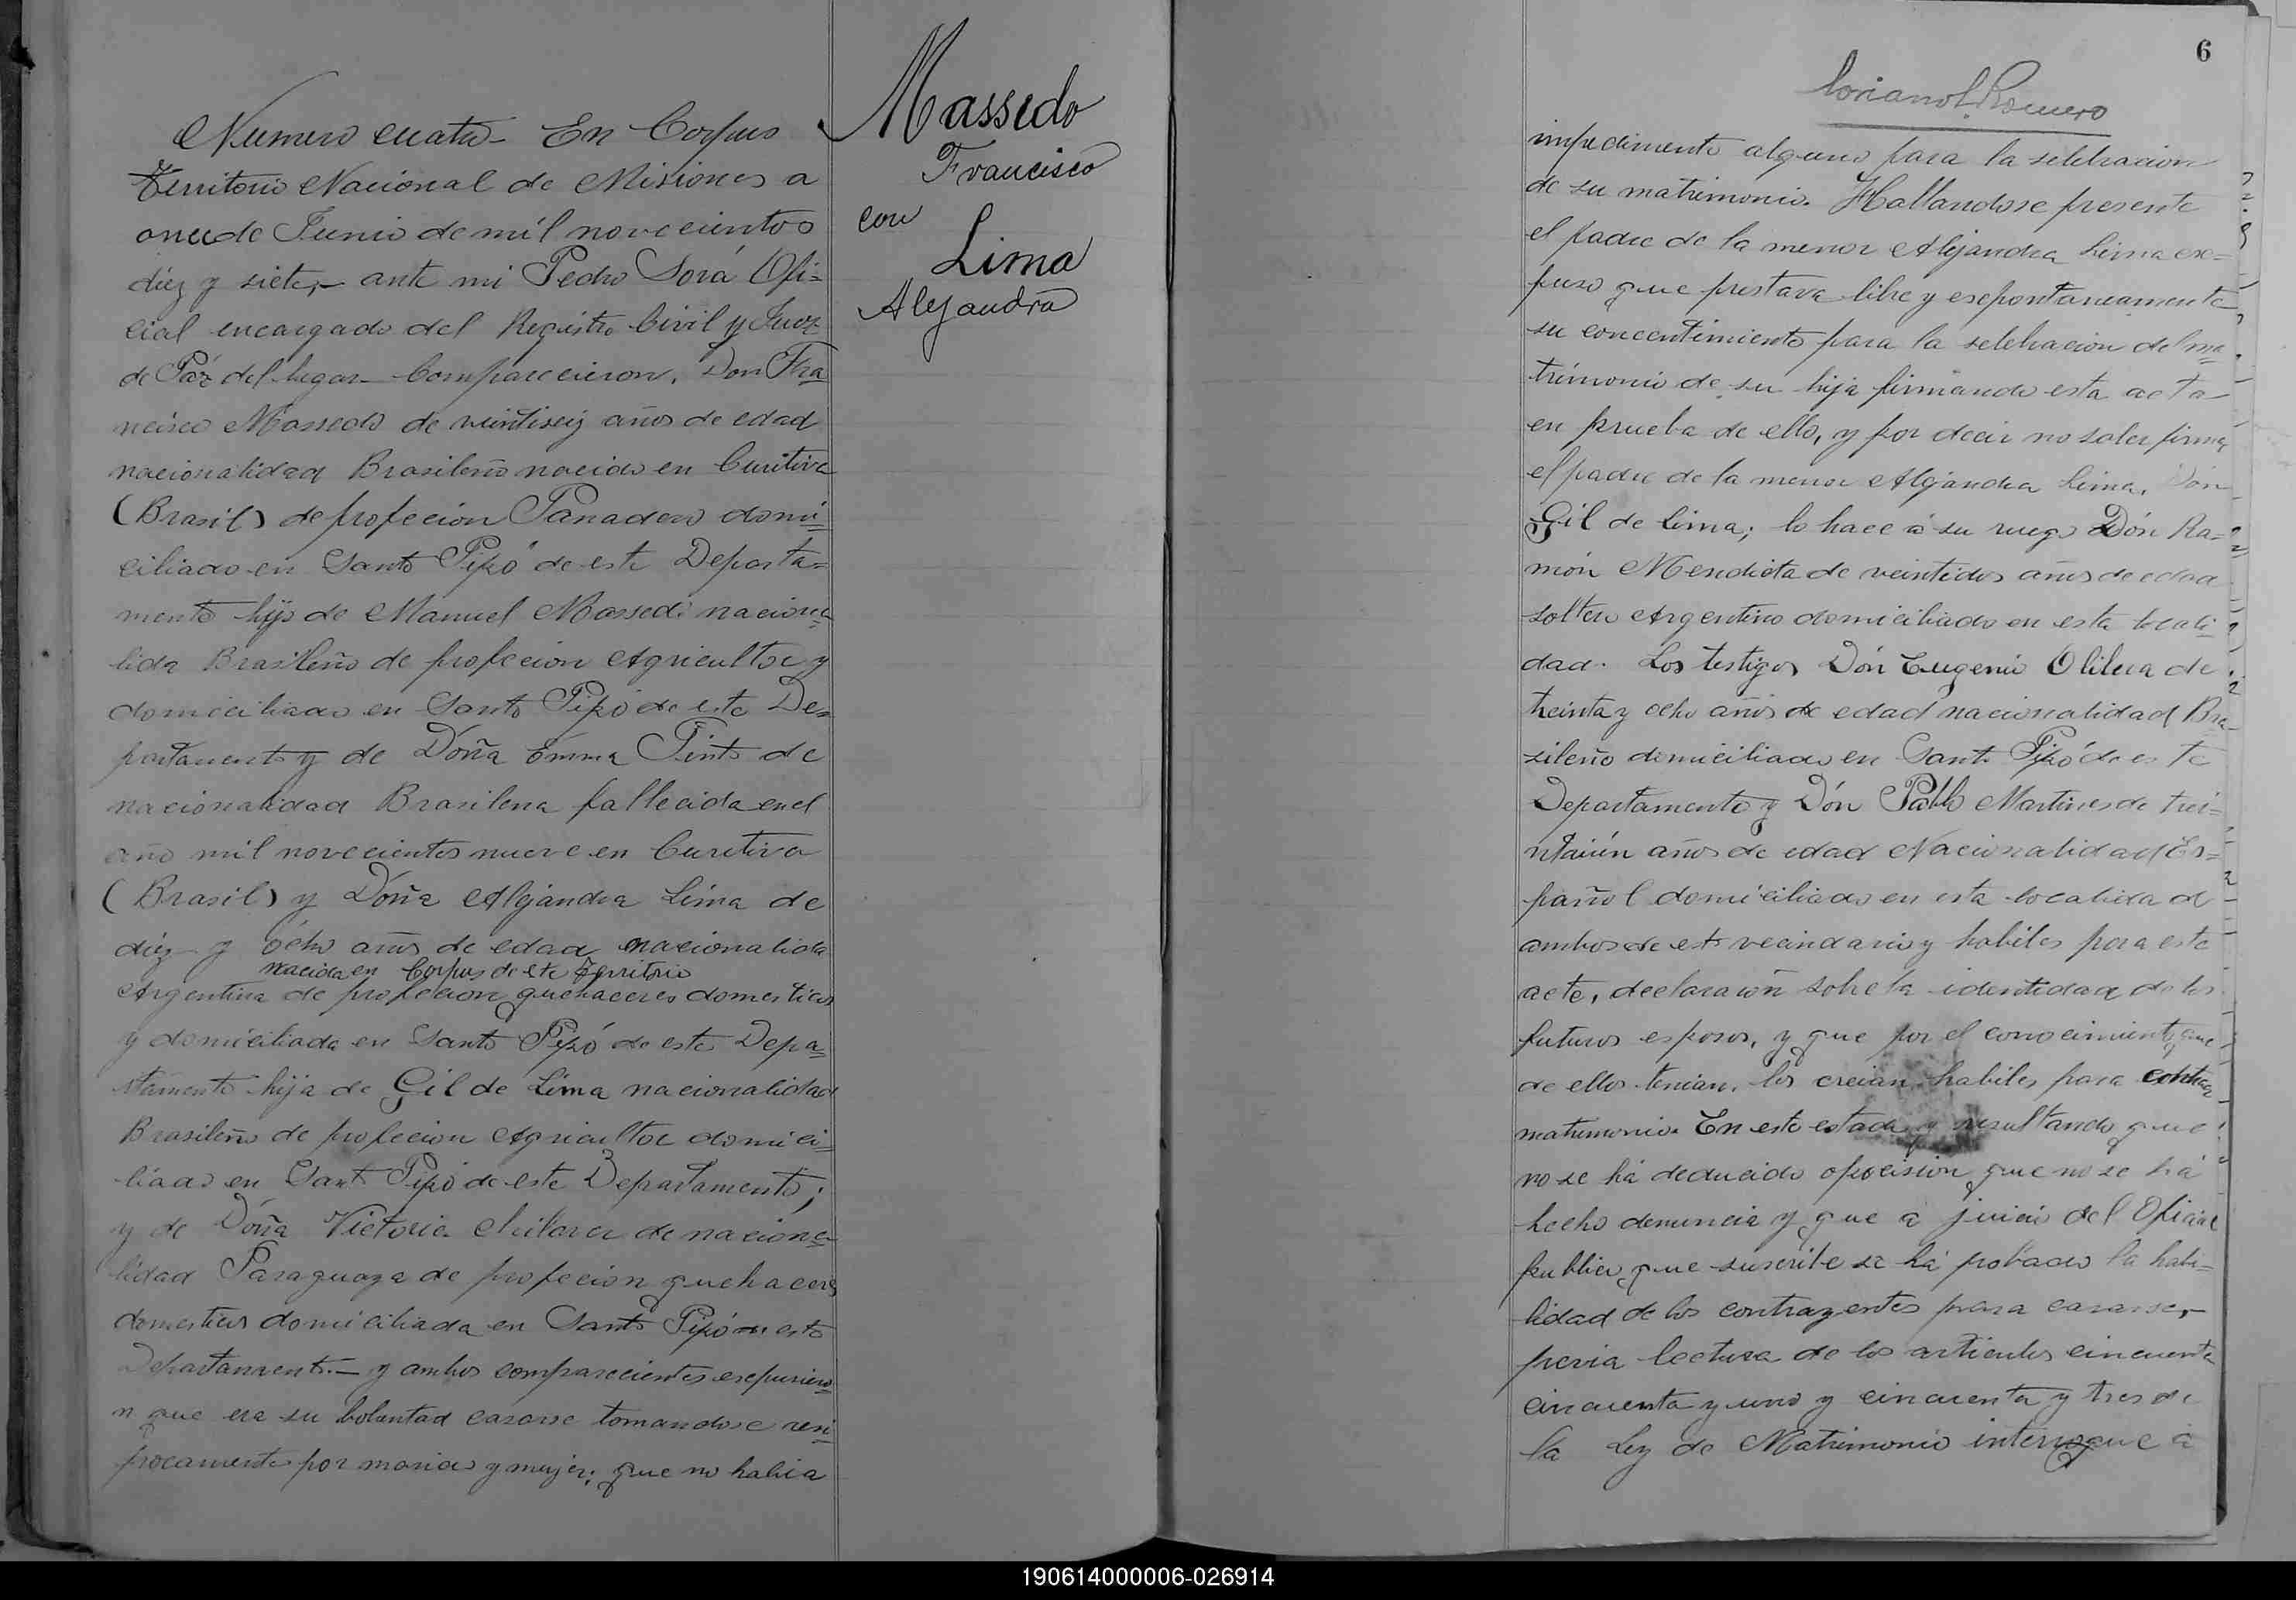 Numero cuatro - En Corpus
Territorio Nacional de Misiones a
once de Junio de mil novecientos
diez y siete,- ante mi Pedro Sorá Ofi=
cial encargado del Registro Civil y Juez
de Páz del lugar - Comparecieron, Don Fra
ncisco Massedo de veintiseiz años de edad
nacionalidad Brasileño nacido en Curitiva
(Brasil) de profecion Panadero domi
ciliado en Santo Pipó de este Departa=
mento hijo de Manuel Massedo naciona
lida Brasileño de profecion Agricultor y
domiciliado en Santo Pipó de este De=
partamento y de Doña Emma Pinto de
nacionalidad Brasilena fallecida en el
año mil novecientos nueve en Curetiva
(Brasil) y Doña Alejandra Lima de
diez y ócho años de edad nacionalida
nacida en Corpus de este Territorio
Argentina de profecion quehaceres domesticos
y domiciliada en Santo Pipó de este Depa
rtamento hija de Gil de Lima nacionalidad
Brasileño de profecion Agricultor domici
liado en Santo Pipó de este Departamento;
y de Doña Victoria de naciona
lidad Paraguaya de profecion quehaceres
domesticos domiciliada en Santo Pipó de este
Departamento.- y ambos comparecientes esepusiero
n que era su boluntad casarse tomandose resi
procamente por marido y mujer; que no habia
Massedo
Francisco
con
Lima
Alejandra
6
Romero
impedimento alguno para la selebracion
de su matrimonio. Hallandose presente
el padre de la menor Alejandra Lima exs=
puso que prestava libre y esepontaneamente
su concentimiento para la selebracion del ma
trimonio de su hija firmando esta acta
en prueba de ello, y por decir no saber firmar
el padre de la menor Alejandra Lima, Dón
Gil de Lima; lo hace á su ruego Dón Ra=
món Mendiota de veintidos años de edad
soltero Argentino domiciliado en esta locali
dad. Los testigos Dón Eugenio de
treinta y ocho años de edad nacionalidad Bra
sileño domiciliado en Santo Pipó de este
Departamento y Dón Pablo Martines de trei=
ntaiún años de edad Nacionalidad Es=
pañol domiciliado en esta localidad
ambos de este vecindario y habiles para este
acto, declaracion sobre la identidad de los
futuros esposos, y que por el conocimiento que
de ellos tenian, los creian habiles para contraer
matrimonio. En este estado y resultando que
no se há deducido opocision que no se há
hecho denuncia y que á juicio del Oficial
publico que suscribe se há probado la habi=
lidad de los contrayentes para casarse,-
previa lectura de los articulos cincuenta
cincuenta y uno y cincuenta y tres de
la Ley de Matrimonio interrogue á
190614000006-026914